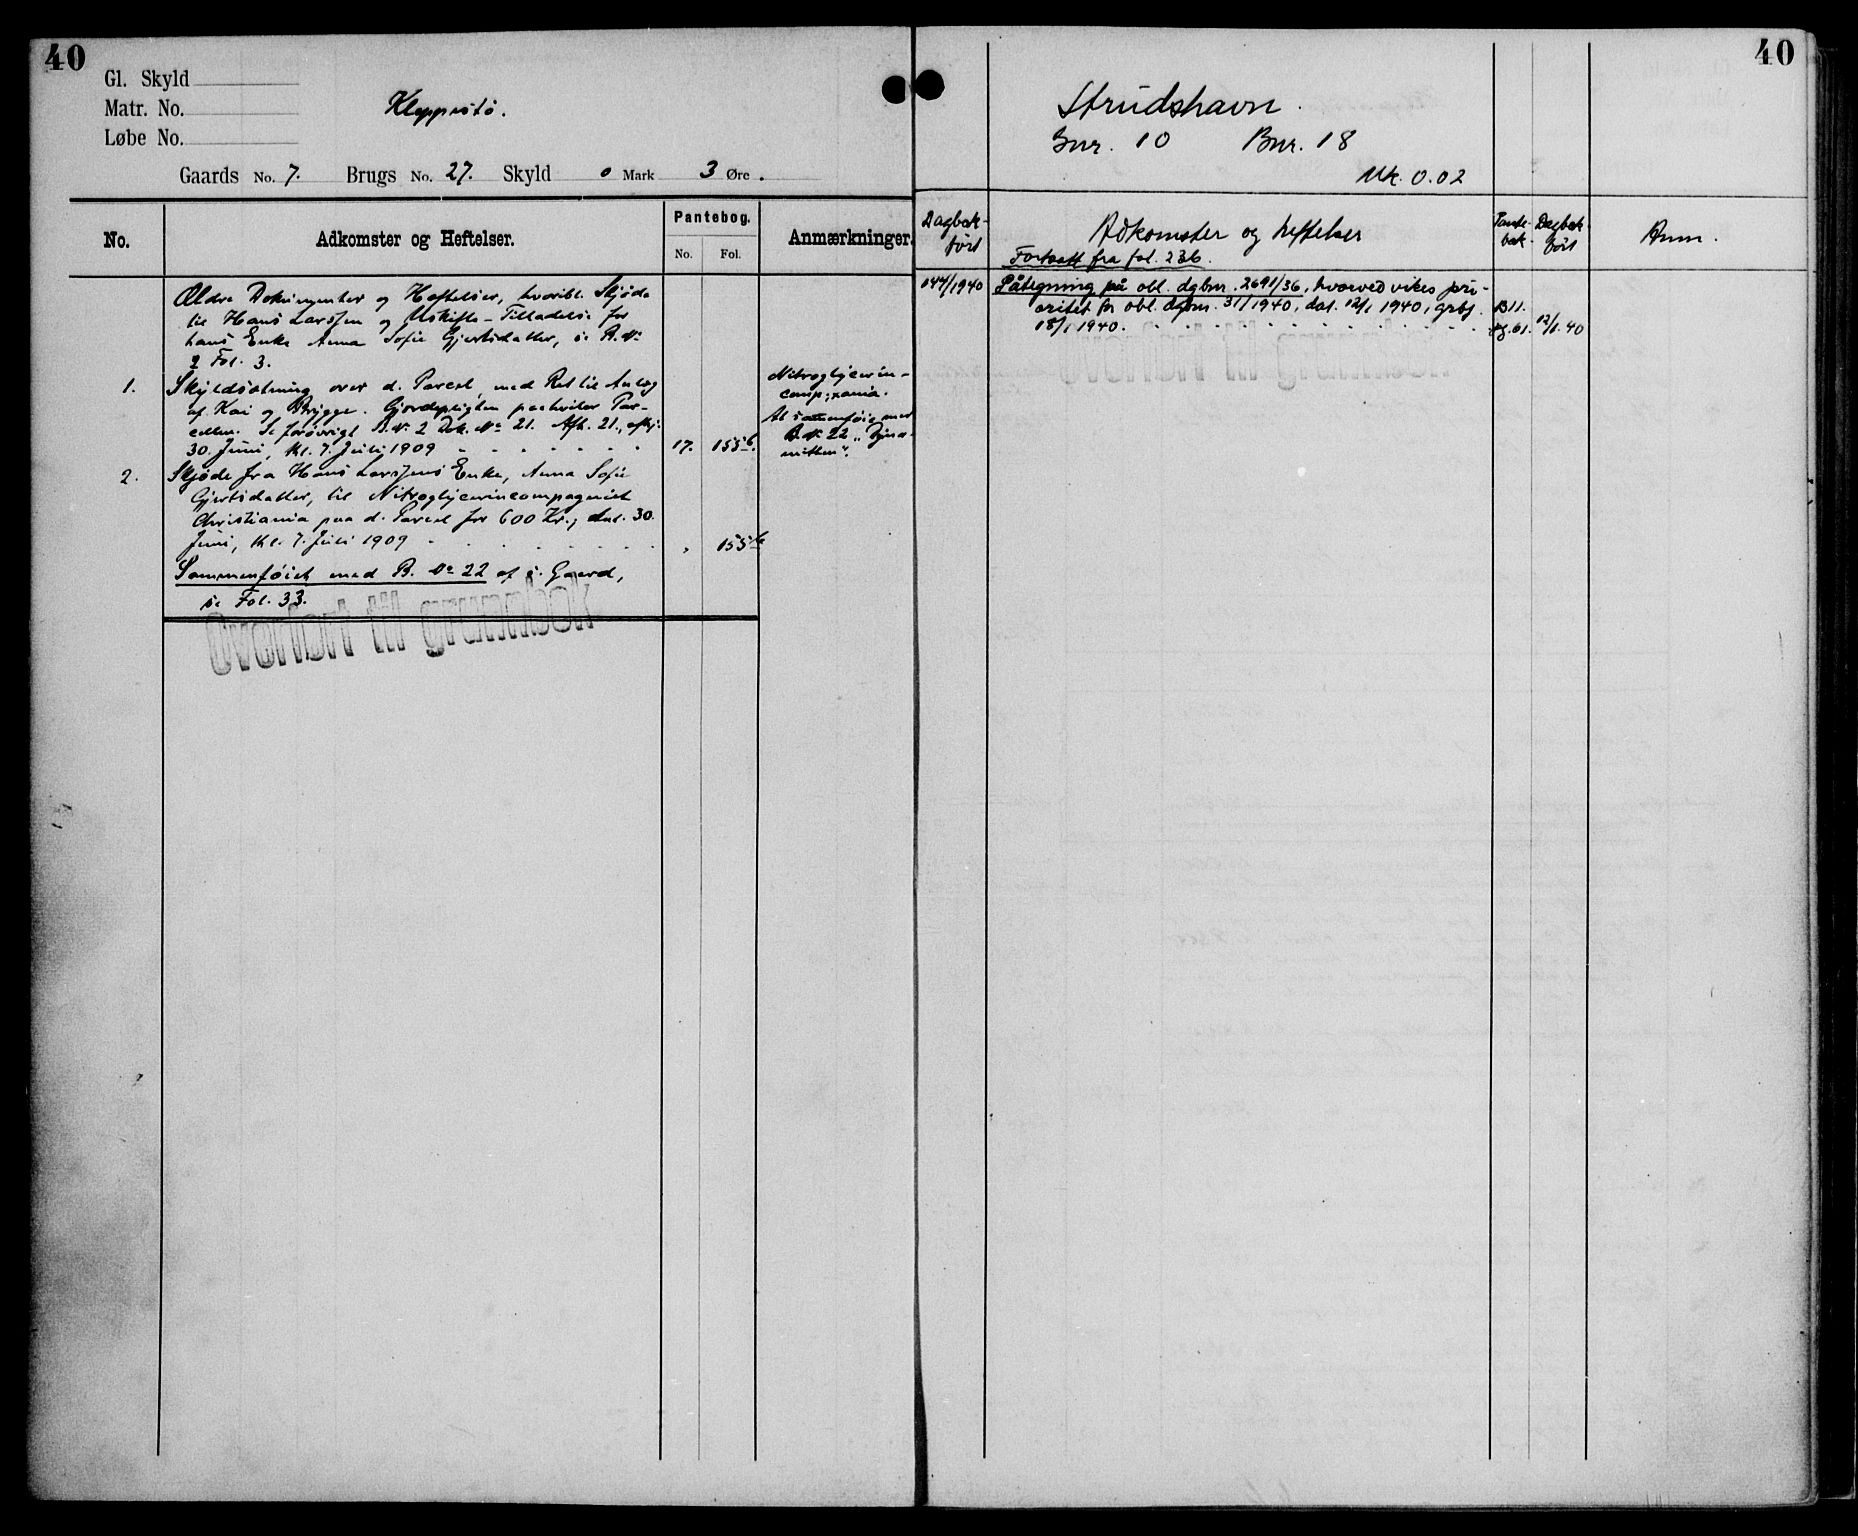 40
Gl. Skyld
Matr. No.
Løbe No.
Kleppestø.
Gaards No. 7. Brugs No. 27. Skyld 0 Mark 3 Øre.
No.
Adkomster og Heftelser.
Pantebog.
No. Fol.
Anmærkninger.
Ældre Dokumenter og Heftelser, hvoribl. Skjøde
til Hans Larssen og Uskifte-Tilladelse for
hans Enke Anna Sofie Gjertsdatter, se B. No
2 Fol. 3.
1. Skyldsætning over d. Parcel, med Ret til Anlæg
af Kai og Brygge. Gjerdepligten paahviler Par-
cellen. Se forøvrigt B. No 2 Dok. No 21. Afh. 21., afhj.
30. Juni, thl. 7. Juli 1909 17. 155 b.
2. Skjøde fra Hans Larssens Enke, Anna Sofie
Gjertsdatter, til Nitroglycerincompagniet
Christiania paa d. Parcel for 600 Kr., dat. 30.
Juni, thl. 7. Juli 1909 " 155 b
Sammenføiet med B. No 22 af s. Gaard,
se Fol. 33.
Overført til grunnbok
Nitroglycerin-
comp. xania.
At sammenføie med
B. No 22 "Dyna-
mitten".
40
Strudshavn.
Gnr. 10 Bnr. 18
Mk. 0.02
Dagbok-
ført
Adkomster og heftelser
Fortsatt fra fol. 236.
Pante-
bok.
Dagbok
ført
Anm.
144/1940 Påtegning på obl. dgbnr. 2691/36, hvorved vikes pri-
oritet for obl. dgbnr. 31/1940, dat. 12/1 1940, grbf.
18/1 1940.
B 11.
pg. 61. 12/1. 40
Overført til grunnbok